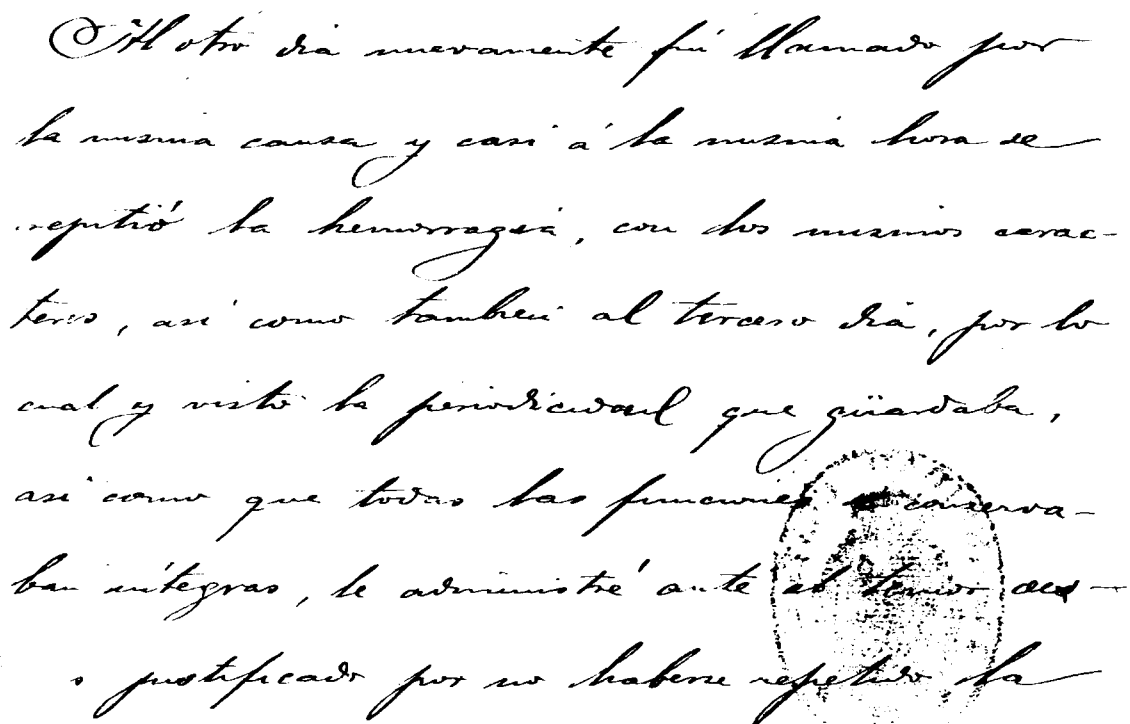 Al otro dia nuevamente fuí llamado por
la misma causa y casi á la misma hora se
repitió la hemorragia, con los mismos carac-
teres, así como tambien al tercero dia, por lo
cual y visto la periodicidad que güardaba,
asi como que todas las funciones se conserva-
ban integras, le administré ante el temor
justificado por no haberse repetido la